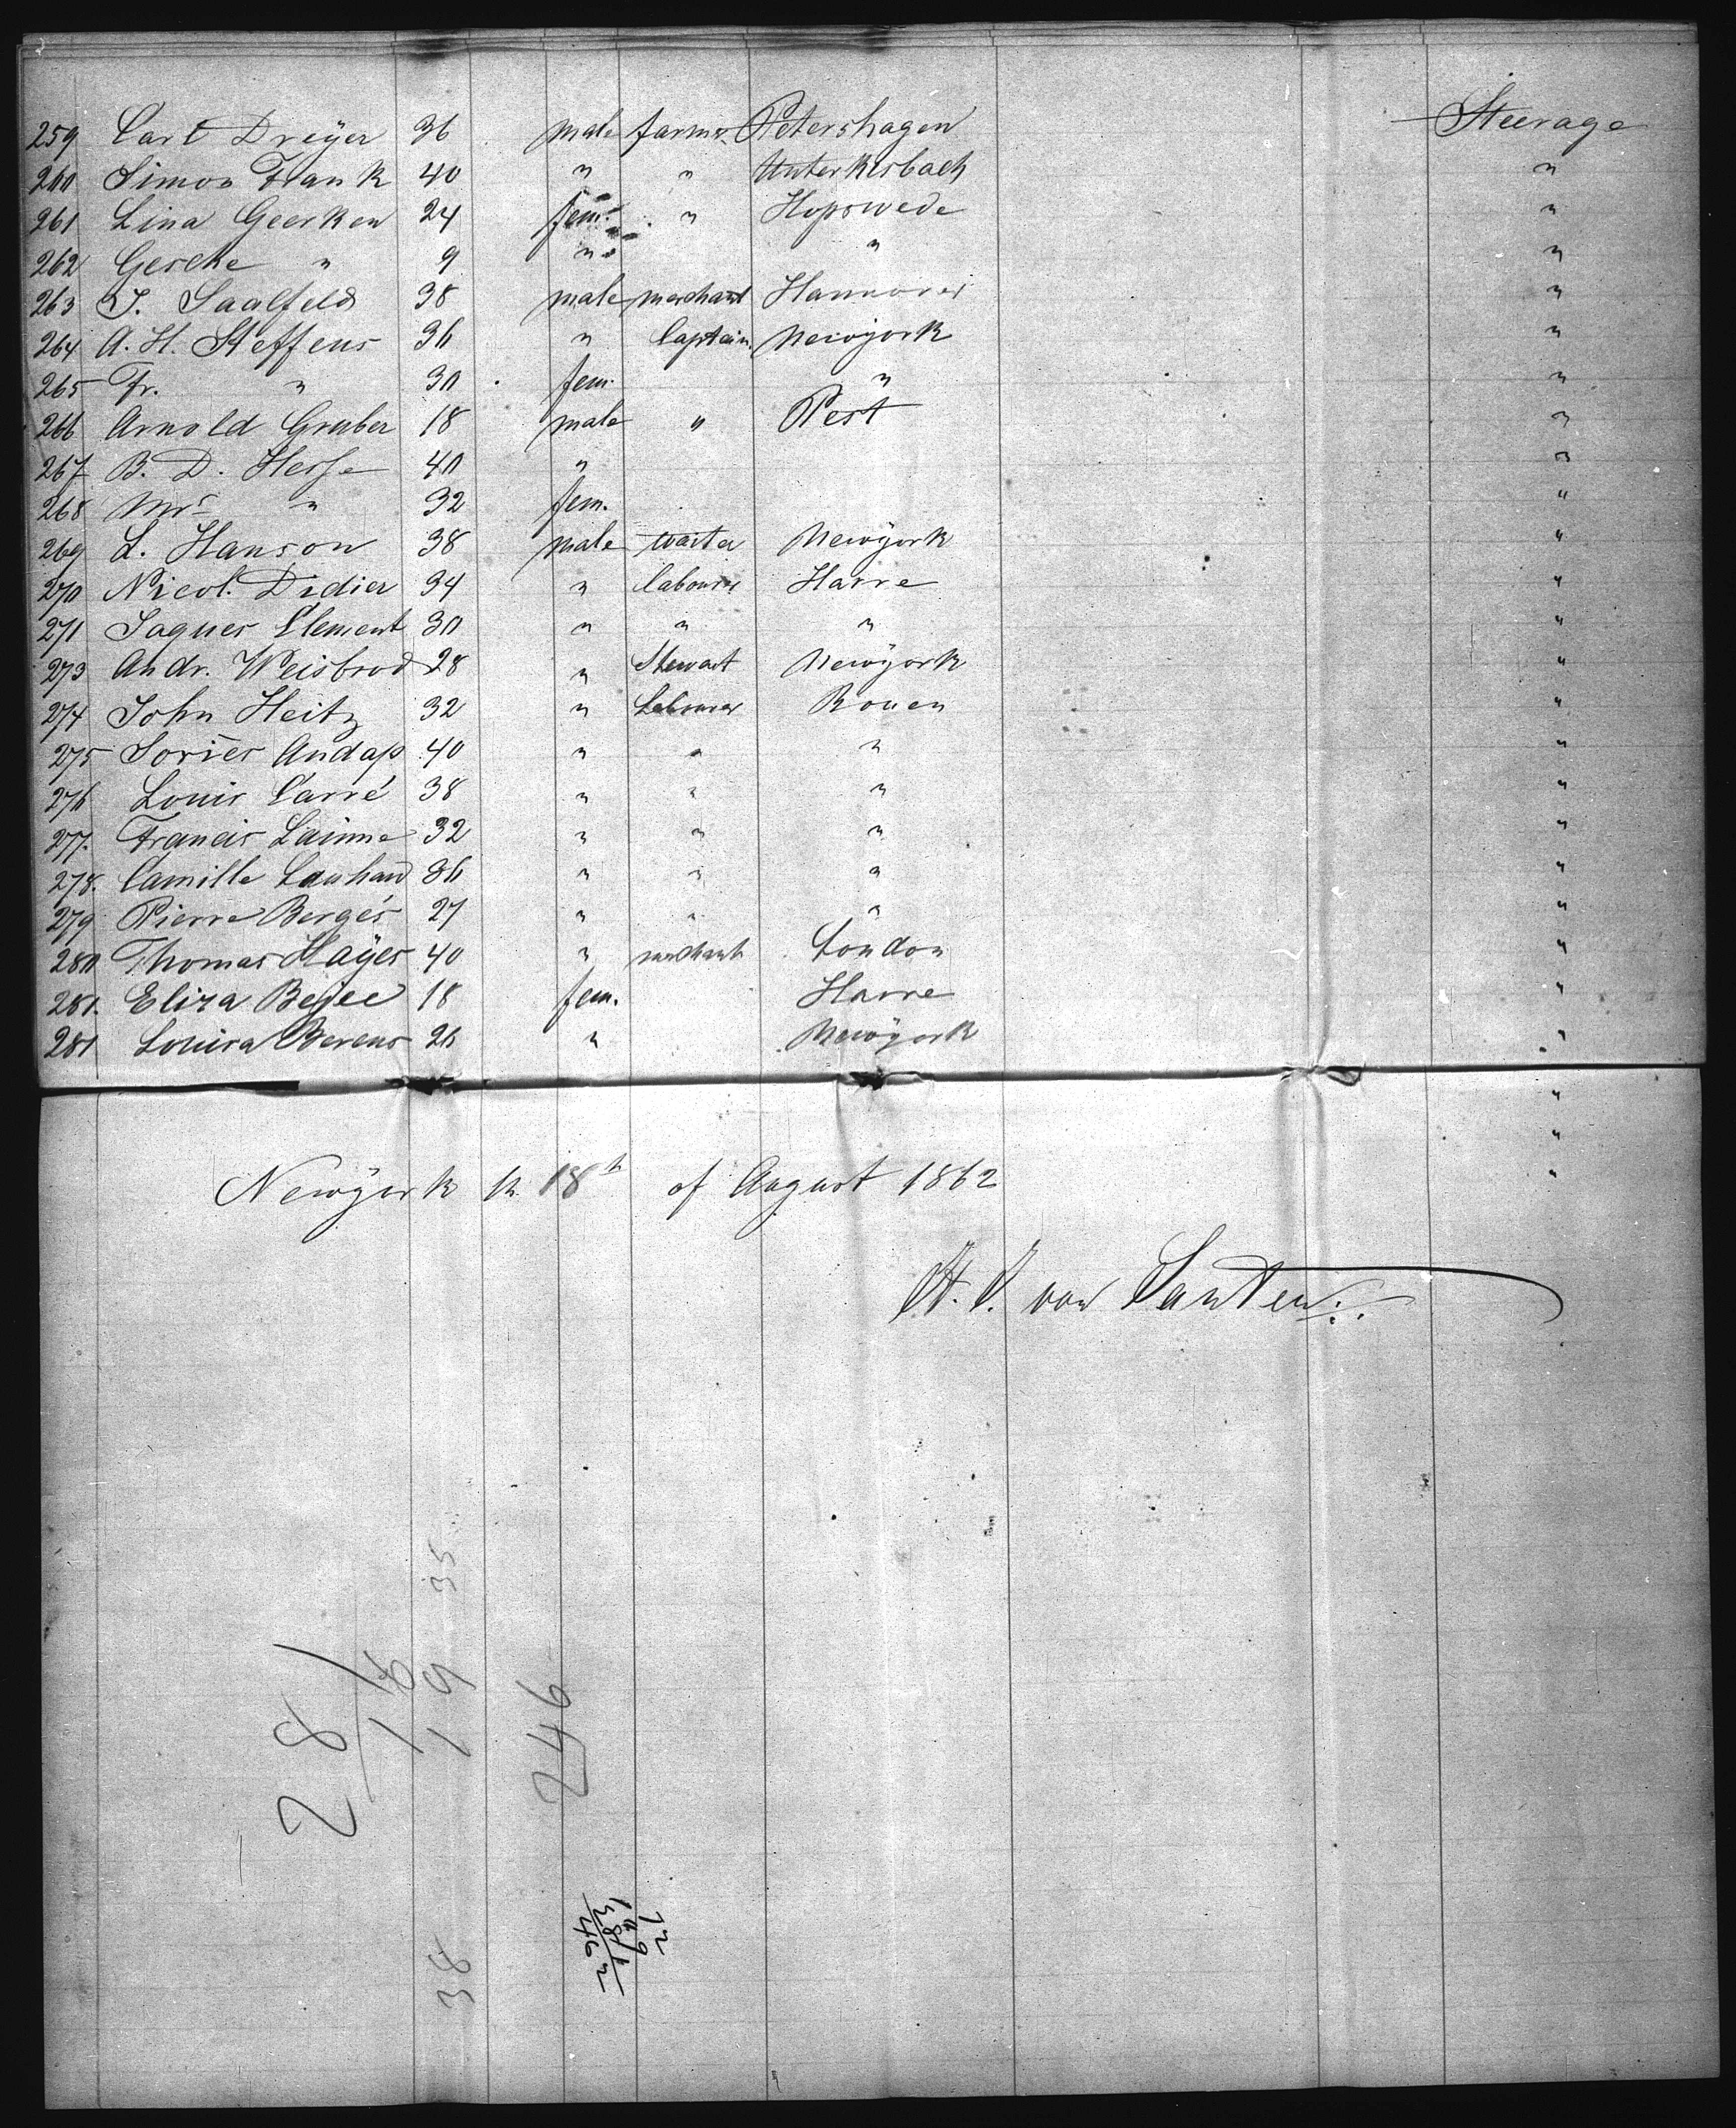 259 Carl Dreÿer 36 male farmer Petershagen Steerage
260 Simon Frank 40 " " Unterkesbach "
261 Lina Geerken 24 fem. " Hopswede "
262 Gesche " 9 " " "
263 J. Saalfeld 38 male merchant Hannover "
264 A. H. Steffens 36 " Captain Newÿork "
265 Fr. " 30 fem. " "
266 Arnold Gruber 18 male " Pest "
267 B. D. Hesse 40 " "
268 Mrs " 32 fem. "
269 L. Hanson 38 male waiter Newÿork "
270 Nicol. Didier 34 " labourer Havre "
271 Jaques Clement 30 " " " "
273 Andr. Weisbrod 28 " Stewart Newÿork "
274 John Heitz 32 " Labourer Rouen "
275 Andap 40 " " " "
276 Louis Carré 38 " " " "
277. Francis Laimme 32 " " " "
278. Camille Lauhaud 36 " " " "
279 Pierre Bergés 27 " " " "
280 Thomas Haÿes 40 " merchant London "
281. Eliza 18 fem. Havre "
281 Louisa Berens 26 " Newÿork "
"
"
Newÿork th. 18th of August 1862 "
H. J. von Santen
35
281
16
19
246
72
109
281
462
38